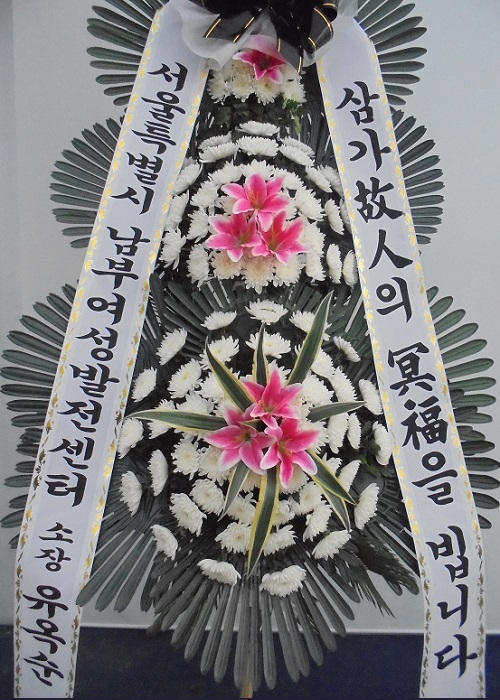 삼가 故人의 冥福을 빕니다
서울특별시 남부여성발전센터 소장 유옥순